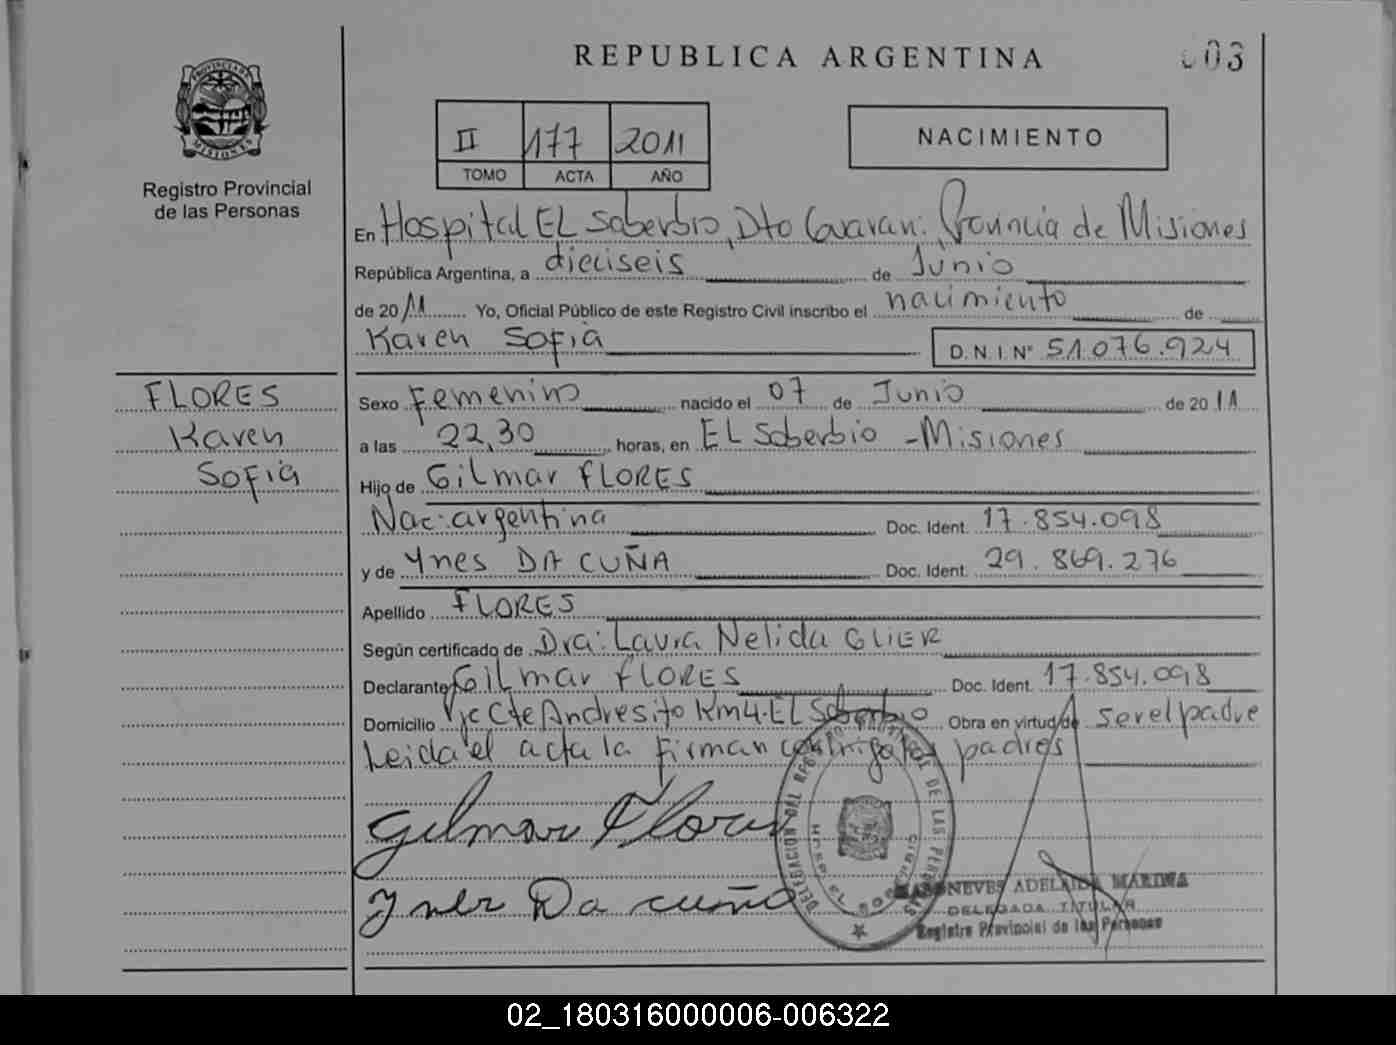 REPUBLICA ARGENTINA
003
PROVINCIA DE MISIONES
Registro Provincial
de las Personas
II 177 2011
TOMO ACTA AÑO
NACIMIENTO
En Hospital EL Soberbio, Dto Guarani. Provincia de Misiones
República Argentina, a dieciseis de Junio
de 2011 Yo, Oficial Público de este Registro Civil inscribo el nacimiento de
Karen Sofia D.N.I.Nº 51.076.924
FLORES
Karen
Sofia
Sexo Femenino nacido el 07 de Junio de 2011
a las 22,30 horas, en EL Soberbio - Misiones
Hijo de Gilmar FLORES
Nac: argentina Doc. Ident. 17.854.098
y de Ynes DA CUÑA Doc. Ident. 29.869.276
Apellido FLORES
Según certificado de Dra: Laura Nelida GLIER
Declarante Gilmar FLORES Doc. Ident. 17.854.098
Domicilio Cte Andresito Km4. EL Soberbio Obra en virtud de ser el padre
Leida el acta la firman conmigo los padres
Gilmar Flores
Ynes Da cuña
DELEGACION DEL REGISTRO PROVINCIAL DE LAS PERSONAS
NEVES ADELAIDA MARINA
DELEGADA TITULAR
Registro Provincial de las Personas
02_180316000006-006322